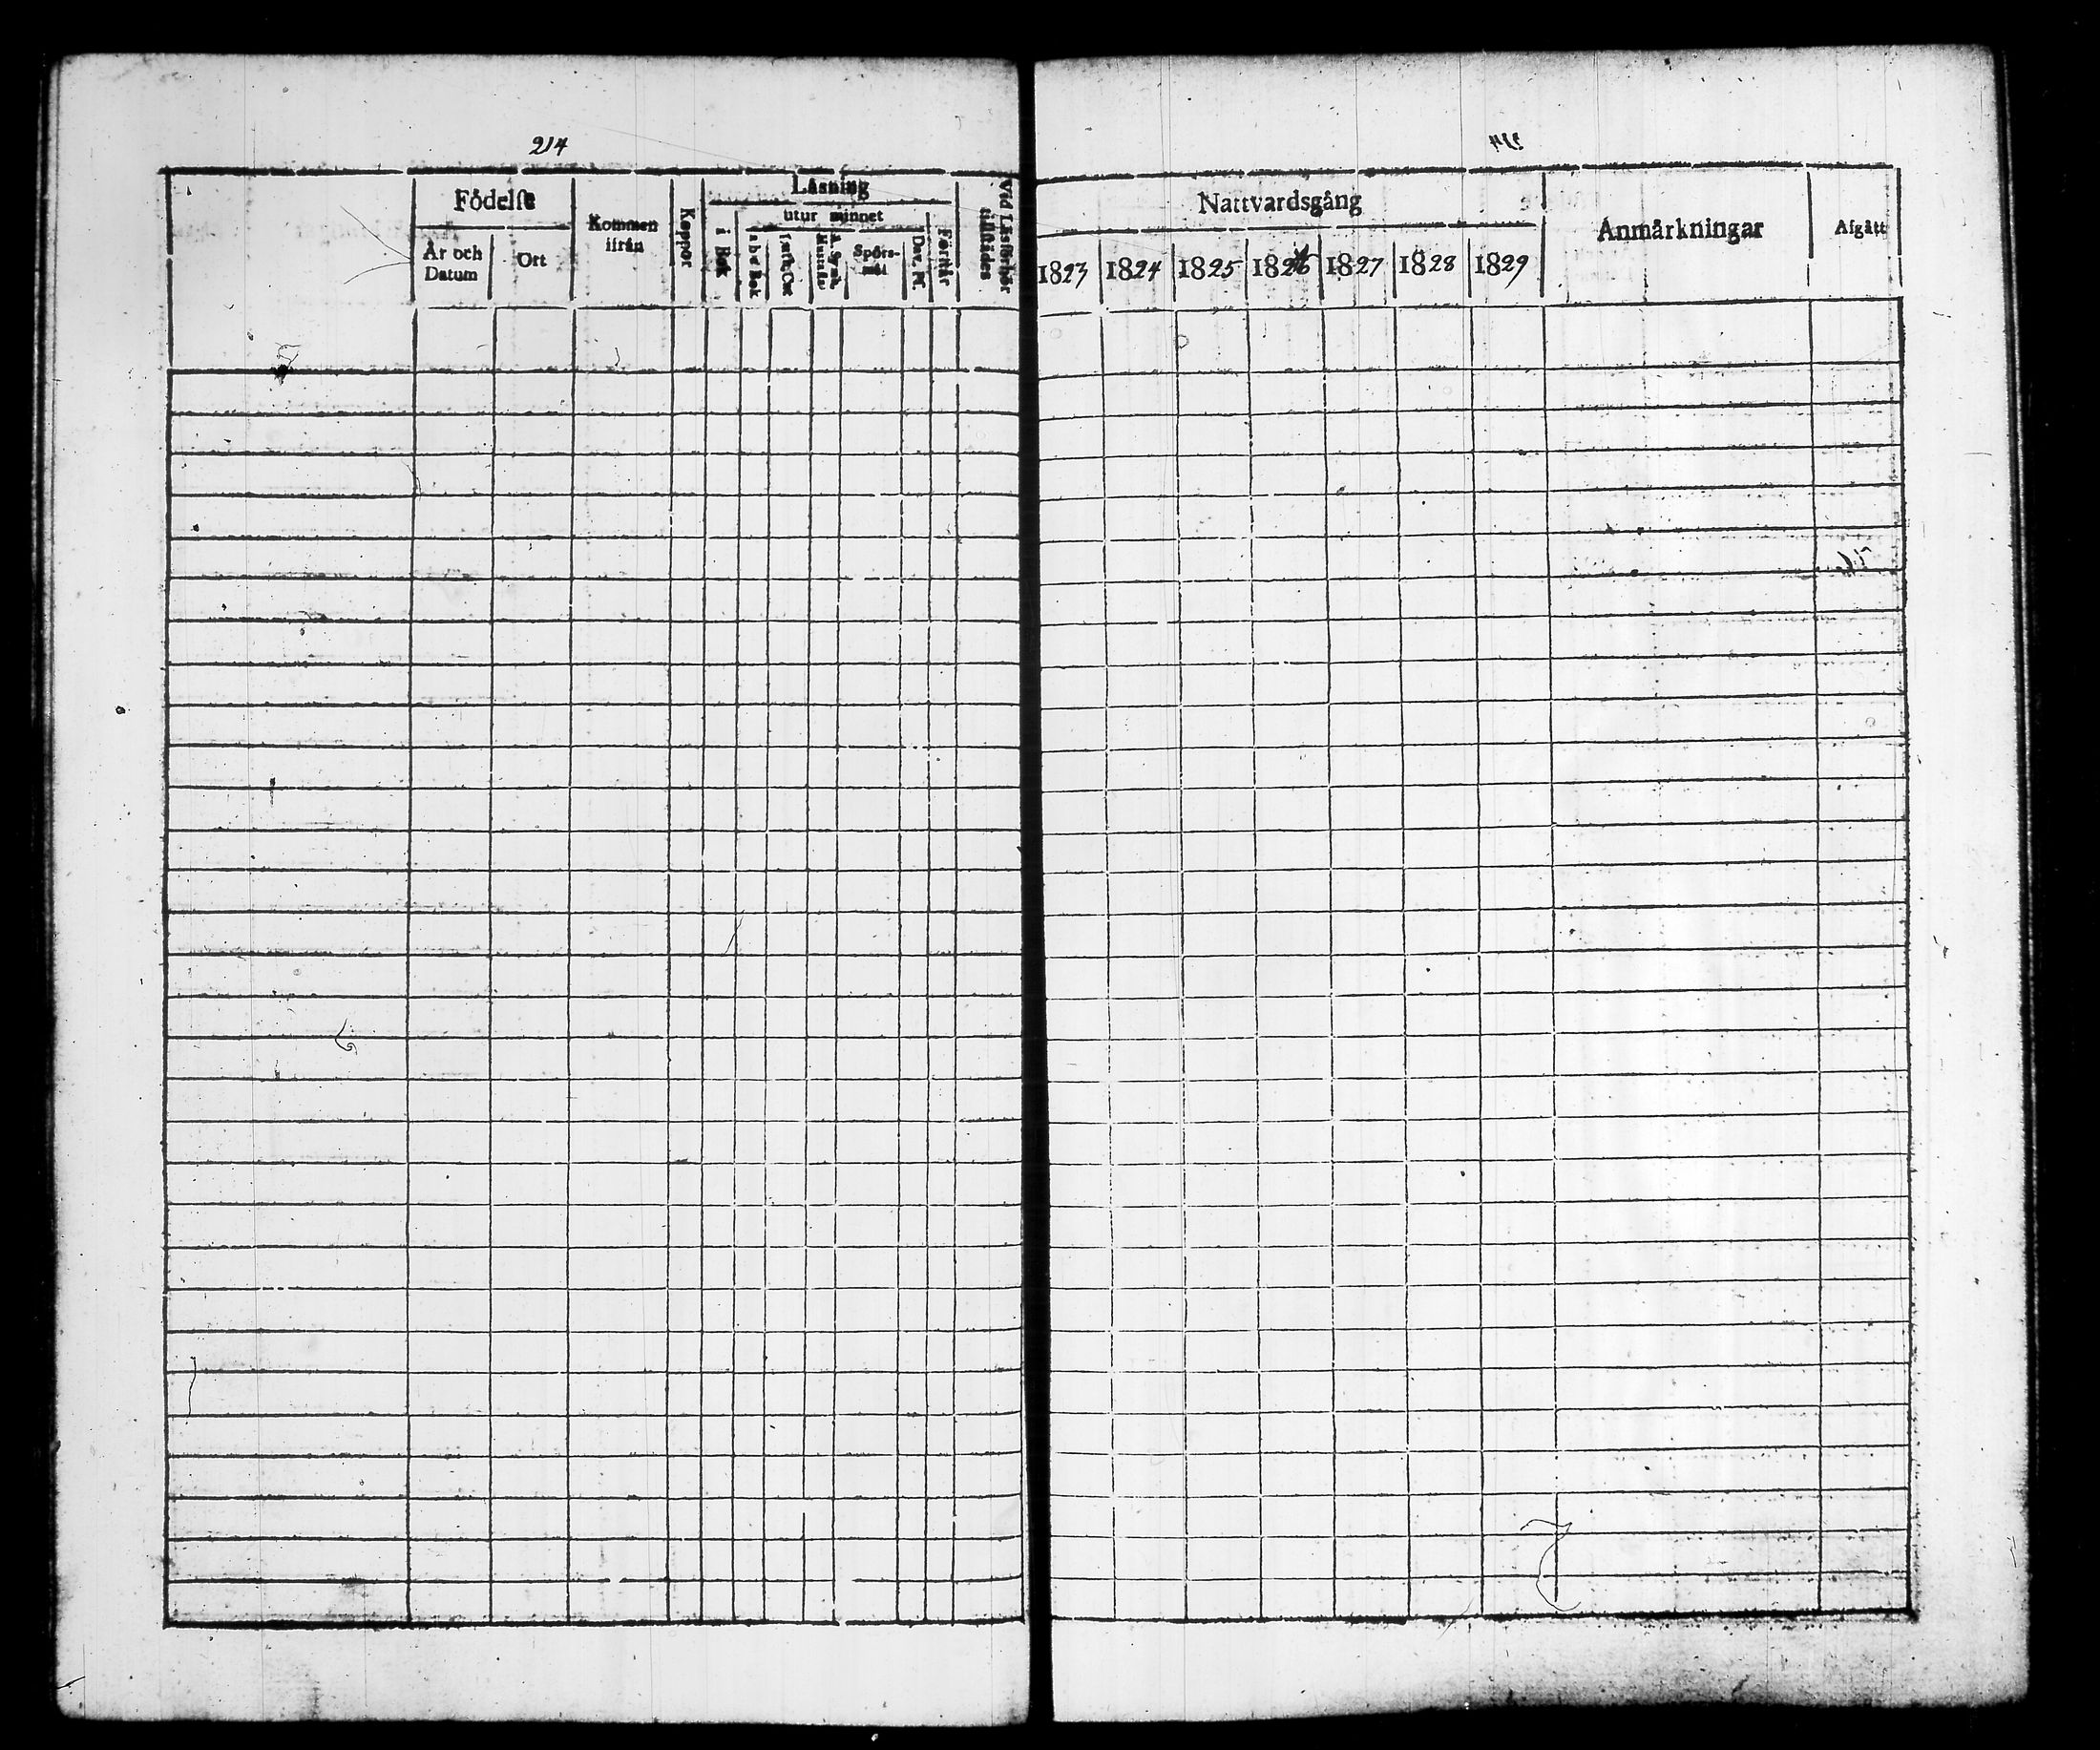 214
Födelse
År och
Datum
Ort
Kommen
ifrån
Koppor
Läsning
i Bok
utur minnet
a b c Bok
Spörs-
mål
Dav. Ps.
Förstår
Vid Läsförhör
tillstädes
Nattvardsgång
1823 1824 1825 1826 1827 1828 1829
Anmärkningar
Afgått